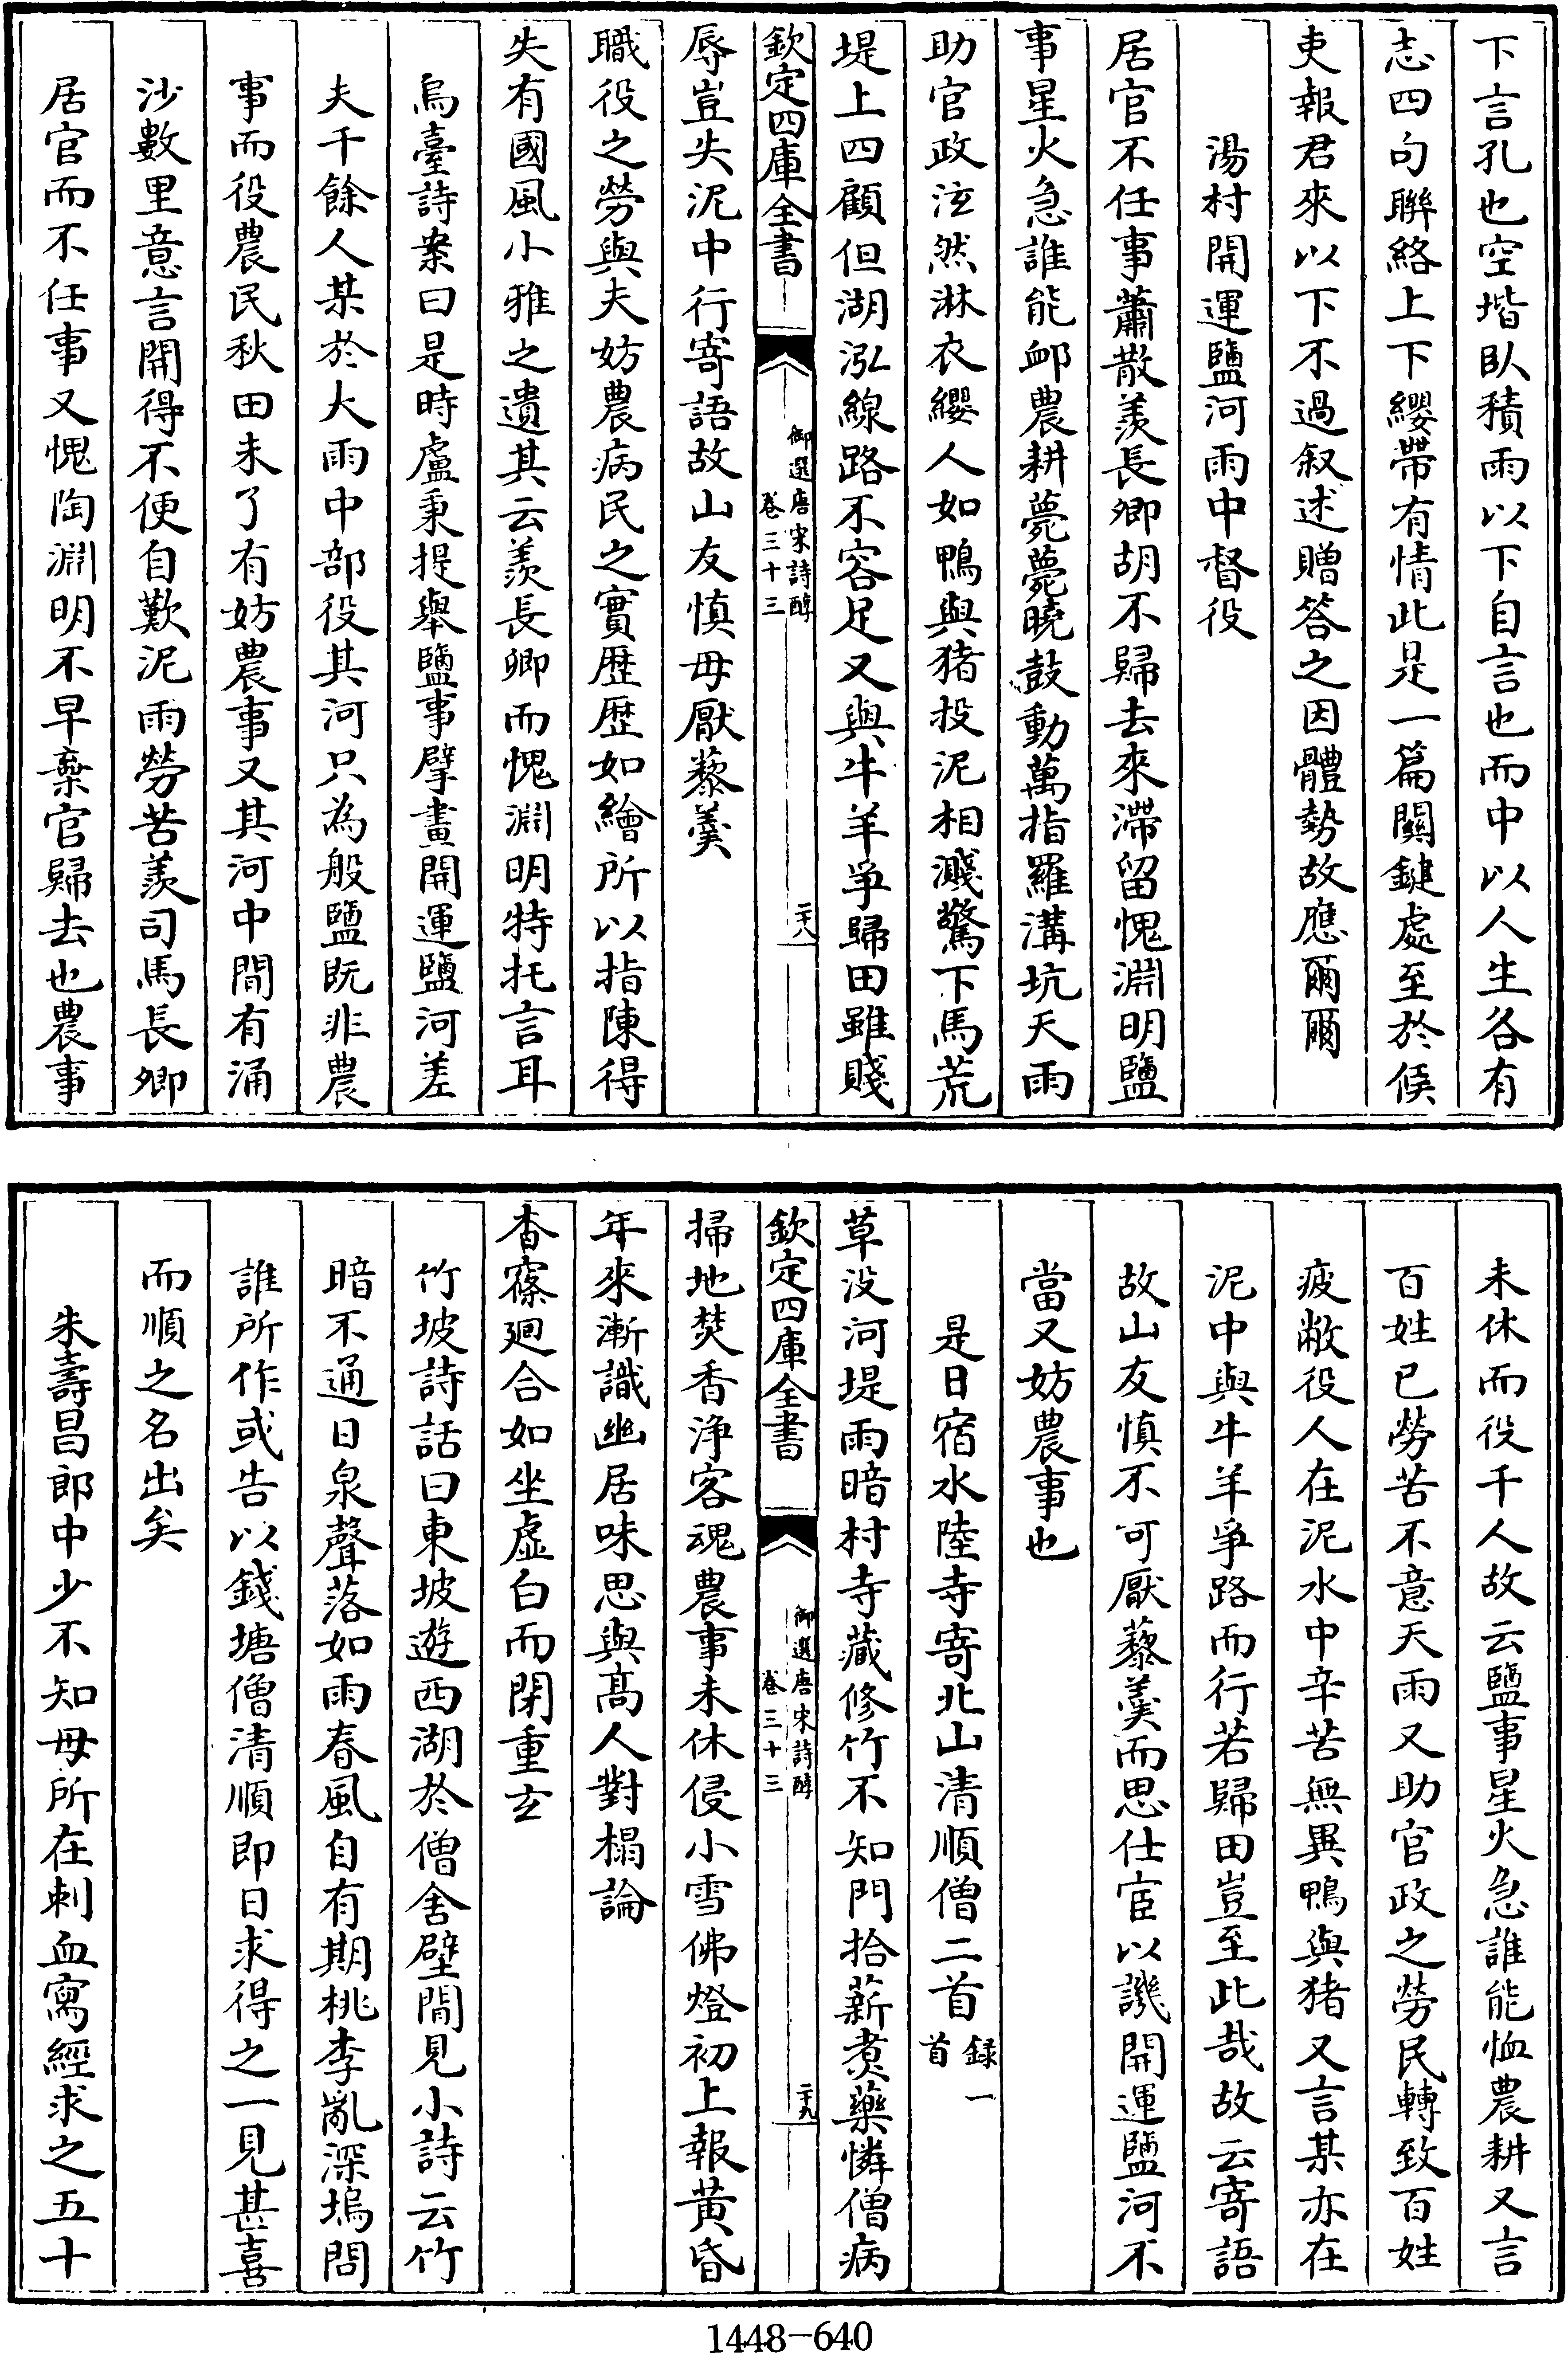 下言孔也空堦臥積雨以下自言也而中以人生各有
志四句聯絡上下纓帶有情此是一篇關鍵處至於候
吏報君來以下不過叙述贈答之因體勢故應爾爾
湯村開運鹽河雨中督役
居官不任事蕭散羨長卿胡不歸去來滯留愧淵明鹽
事星火急誰能衈農耕薨薨曉鼓動萬指羅溝坑天雨
助官政泫然淋衣纓人如鴨與猪投泥相濺驚下馬荒
堤上四顧但湖泓線路不容足又與牛羊爭歸田雖賤
欽定四庫全書
御選唐宋詩醇
卷三十三
二十八
辱豈失泥中行寄語故山友慎毋厭藜羹
職役之勞與夫妨農病民之實歴歴如繪所以指陳得
失有國風小雅之遺其云羨長卿而愧淵明特托言耳
烏臺詩案曰是時盧秉提舉鹽事擘畫開運鹽河差
夫千餘人某於大雨中部役其河只為般鹽既非農
事而役農民秋田未了有妨農事又其河中間有涌
沙數里意言開得不便自歎泥雨勞苦羨司馬長卿
居官而不任事又愧陶淵明不早棄官歸去也農事
未休而役千人故云鹽事星火急誰能恤農耕又言
百姓已勞苦不意天雨又助官政之勞民轉致百姓
疲敝役人在泥水中辛苦無異鴨與猪又言某亦在
泥中與牛羊爭路而行若歸田豈至此哉故云寄語
故山友慎不可厭藜羹而思仕宦以譏開運鹽河不
當又妨農事也
是日宿水陸寺寄北山清順僧二首録一首
草没河堤雨暗村寺藏修竹不知門拾薪煑藥憐僧病
欽定四庫全書
御選唐宋詩醇
卷三十三
二十九
掃地焚香淨客魂農事未休侵小雪佛燈初上報黄昏
年來漸識幽居味思與髙人對榻論
杳窱廻合如坐虚白而閉重玄
竹坡詩話曰東坡遊西湖於僧舍壁間見小詩云竹
暗不通日泉聲落如雨春風自有期桃李亂深塢問
誰所作或告以錢塘僧清順即日求得之一見甚喜
而順之名出矣
朱壽昌郎中少不知母所在刺血寫經求之五十
1448-640